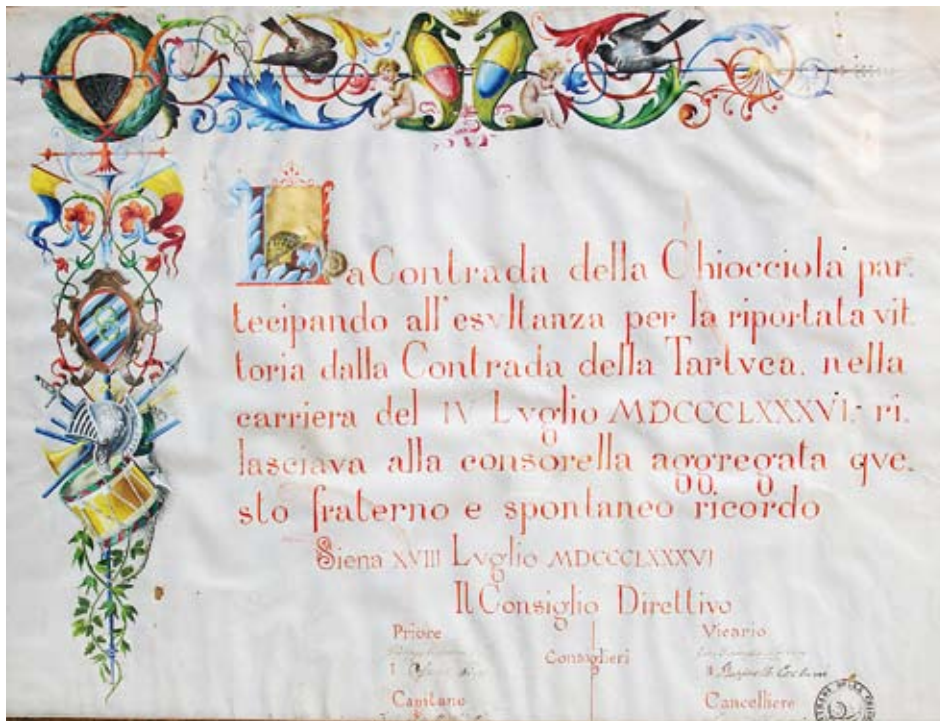 La Contrada della Chiocciola par.
tecipando all'esvltanza per la riportata vit.
toria dalla Contrada della Tartvca. nella
carriera del IV Lvglio MDCCCLXXXVI. ri.
lasciava alla consorella aggregata qve.
sto fraterno e spontaneo ricordo
Siena XVIII Lvglio MDCCCLXXXVI
Il Consiglio Direttivo
Priore Vicario
Consiglieri
Capitano Cancelliere